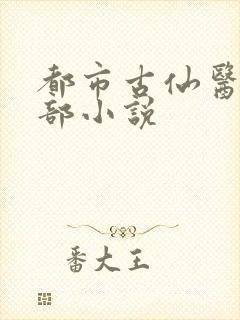 都市古仙醫
部小説
番大王